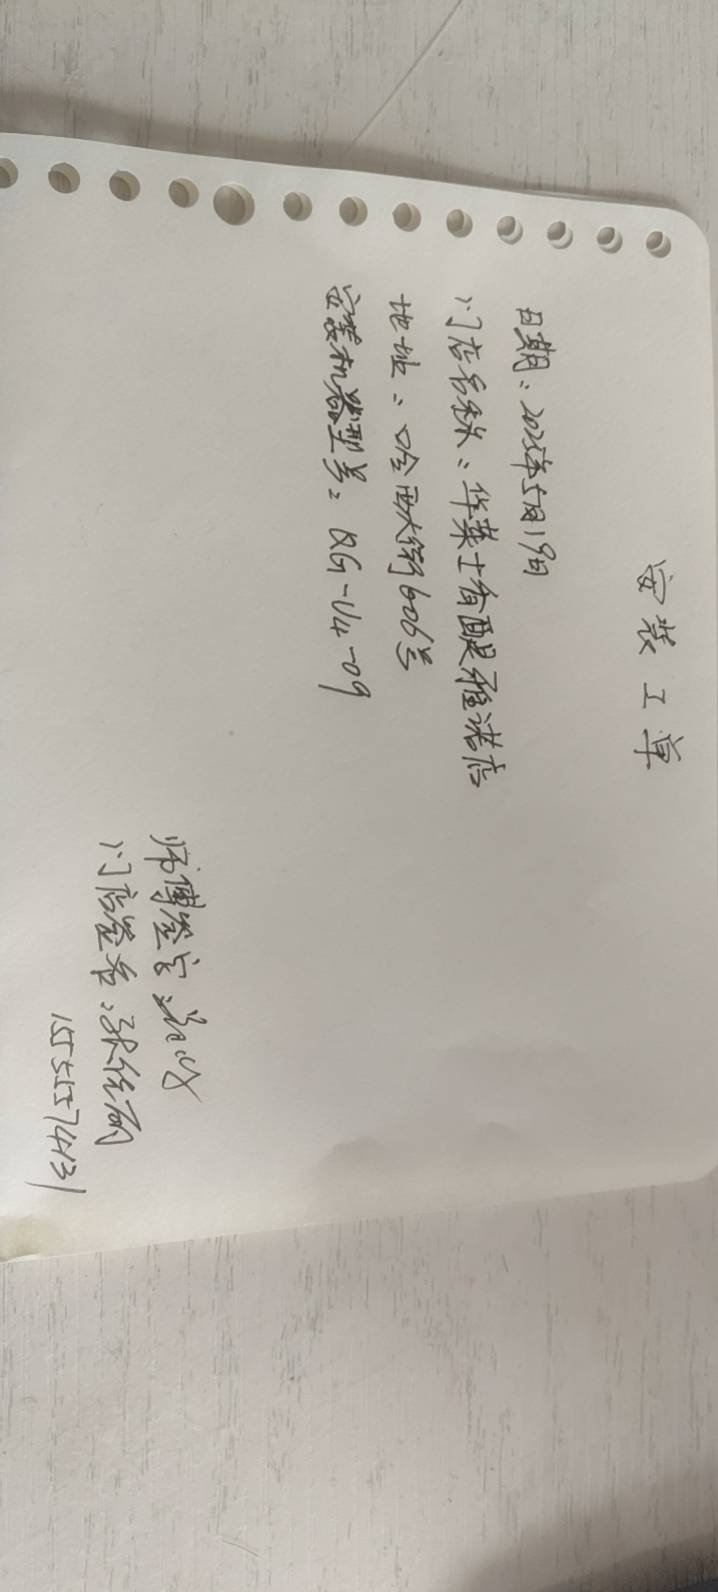 安装工单
日期：2025年5月19日
门店名称：华莱士香醍雅诺店
地址：哈西大街606号
安装机器型号：QG-U4-09
师傅签字：
门店签名：张
15555574131